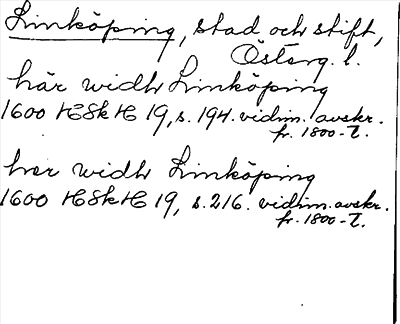 Linköping, stad och stift,
Österg. l.
här widh Linköping
1600 HSkH 19, s. 194. vidim. avskr.
fr. 1800-t.
her widh Linköping
1600 HSkH 19, s. 216. vidim. avskr.
fr. 1800-t.